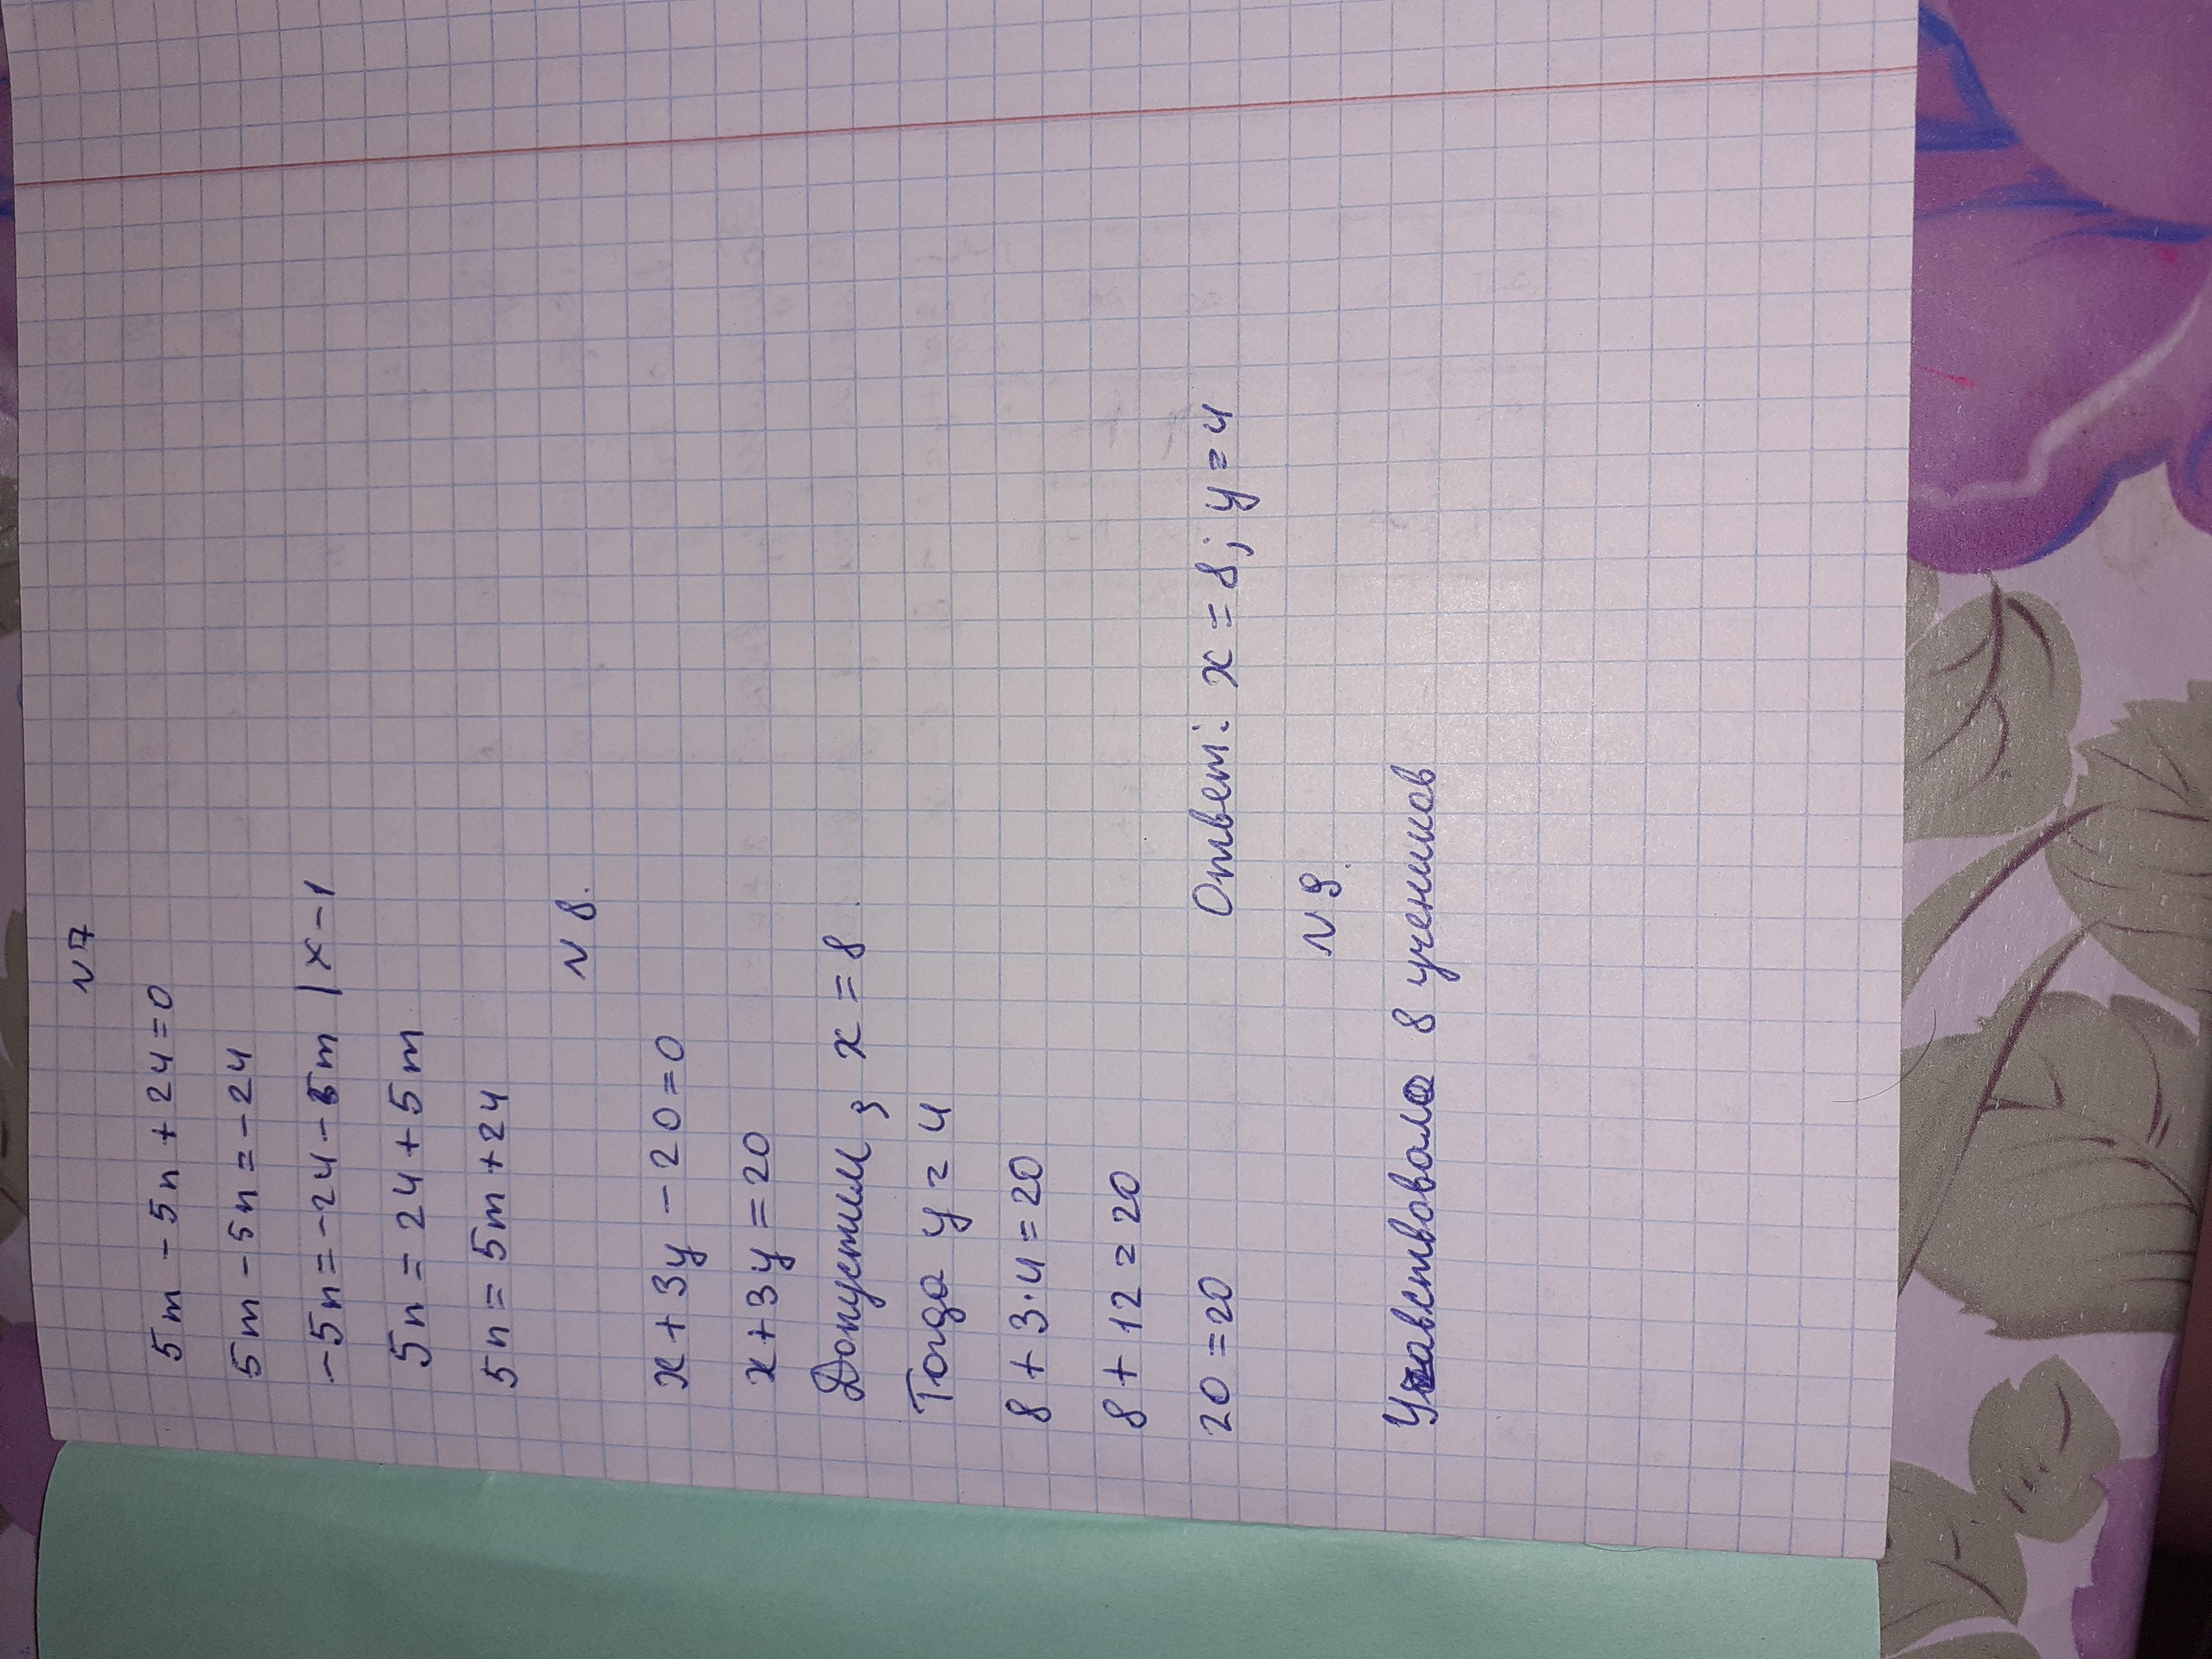 N 7
5m - 5n + 24 = 0
5m - 5n = - 24
- 5n = - 24 - 5m | x - 1
5n = 24 + 5m
5n = 5m + 24
N 8.
x + 3y - 20 = 0
x + 3y = 20
Допустим, x = 8
Тогда y = 4
8 + 3 · 4 = 20
8 + 12 = 20
20 = 20
Ответ: x = 8; y = 4
N 9.
Учавствовало 8 учеников